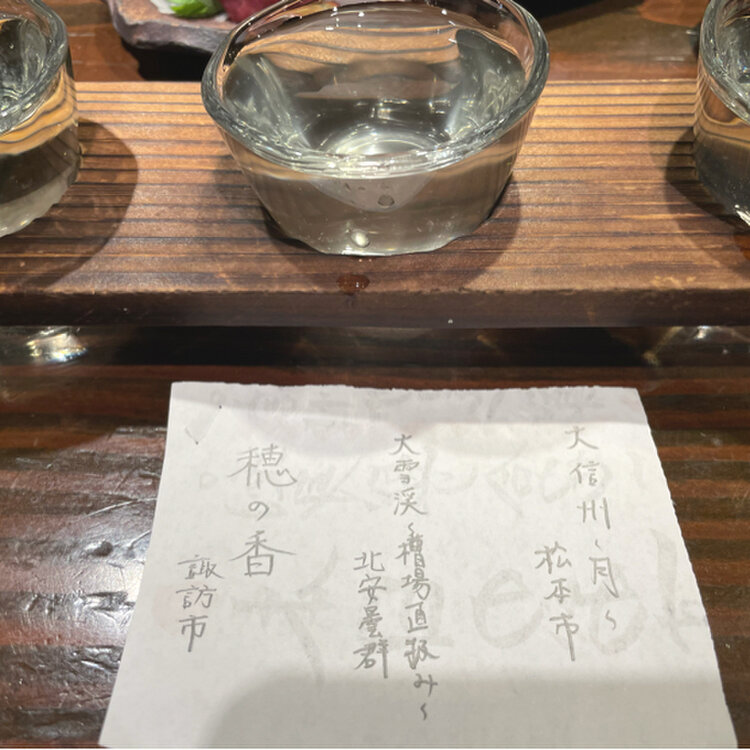 大信州〜月〜
松本市
大雪渓〜槽場直汲み〜
北安曇群
穂の香
諏訪市